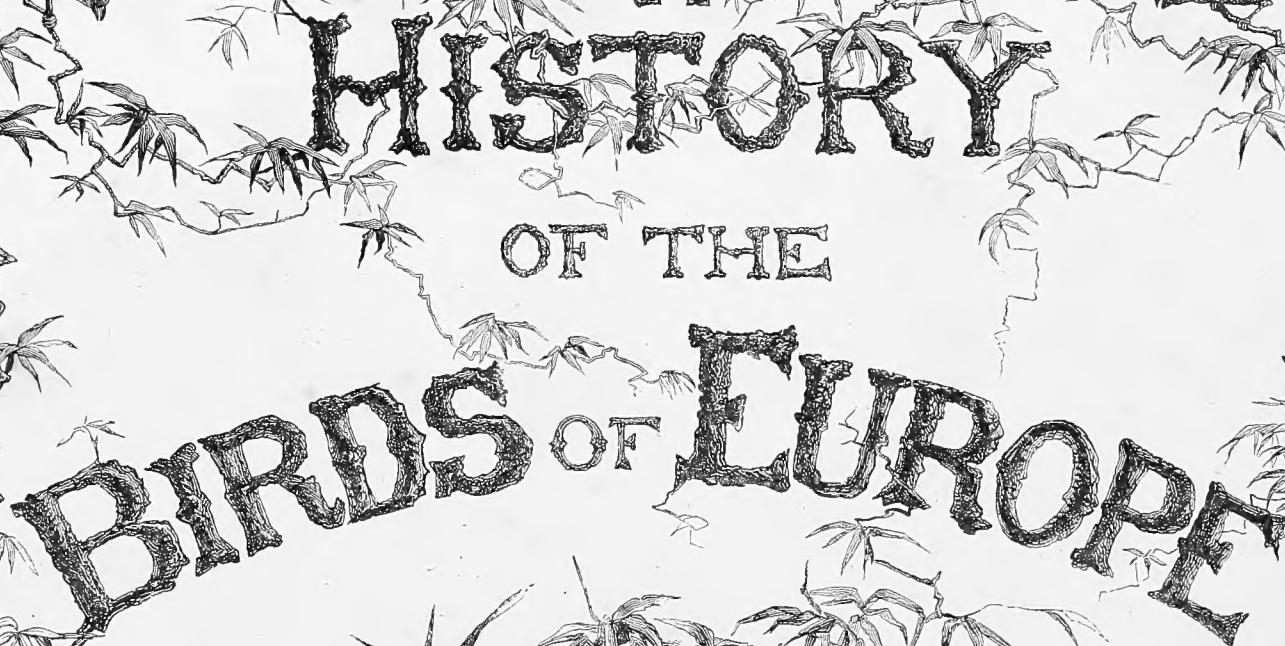 HISTORY
OF THE
BIRDS OF EUROPE